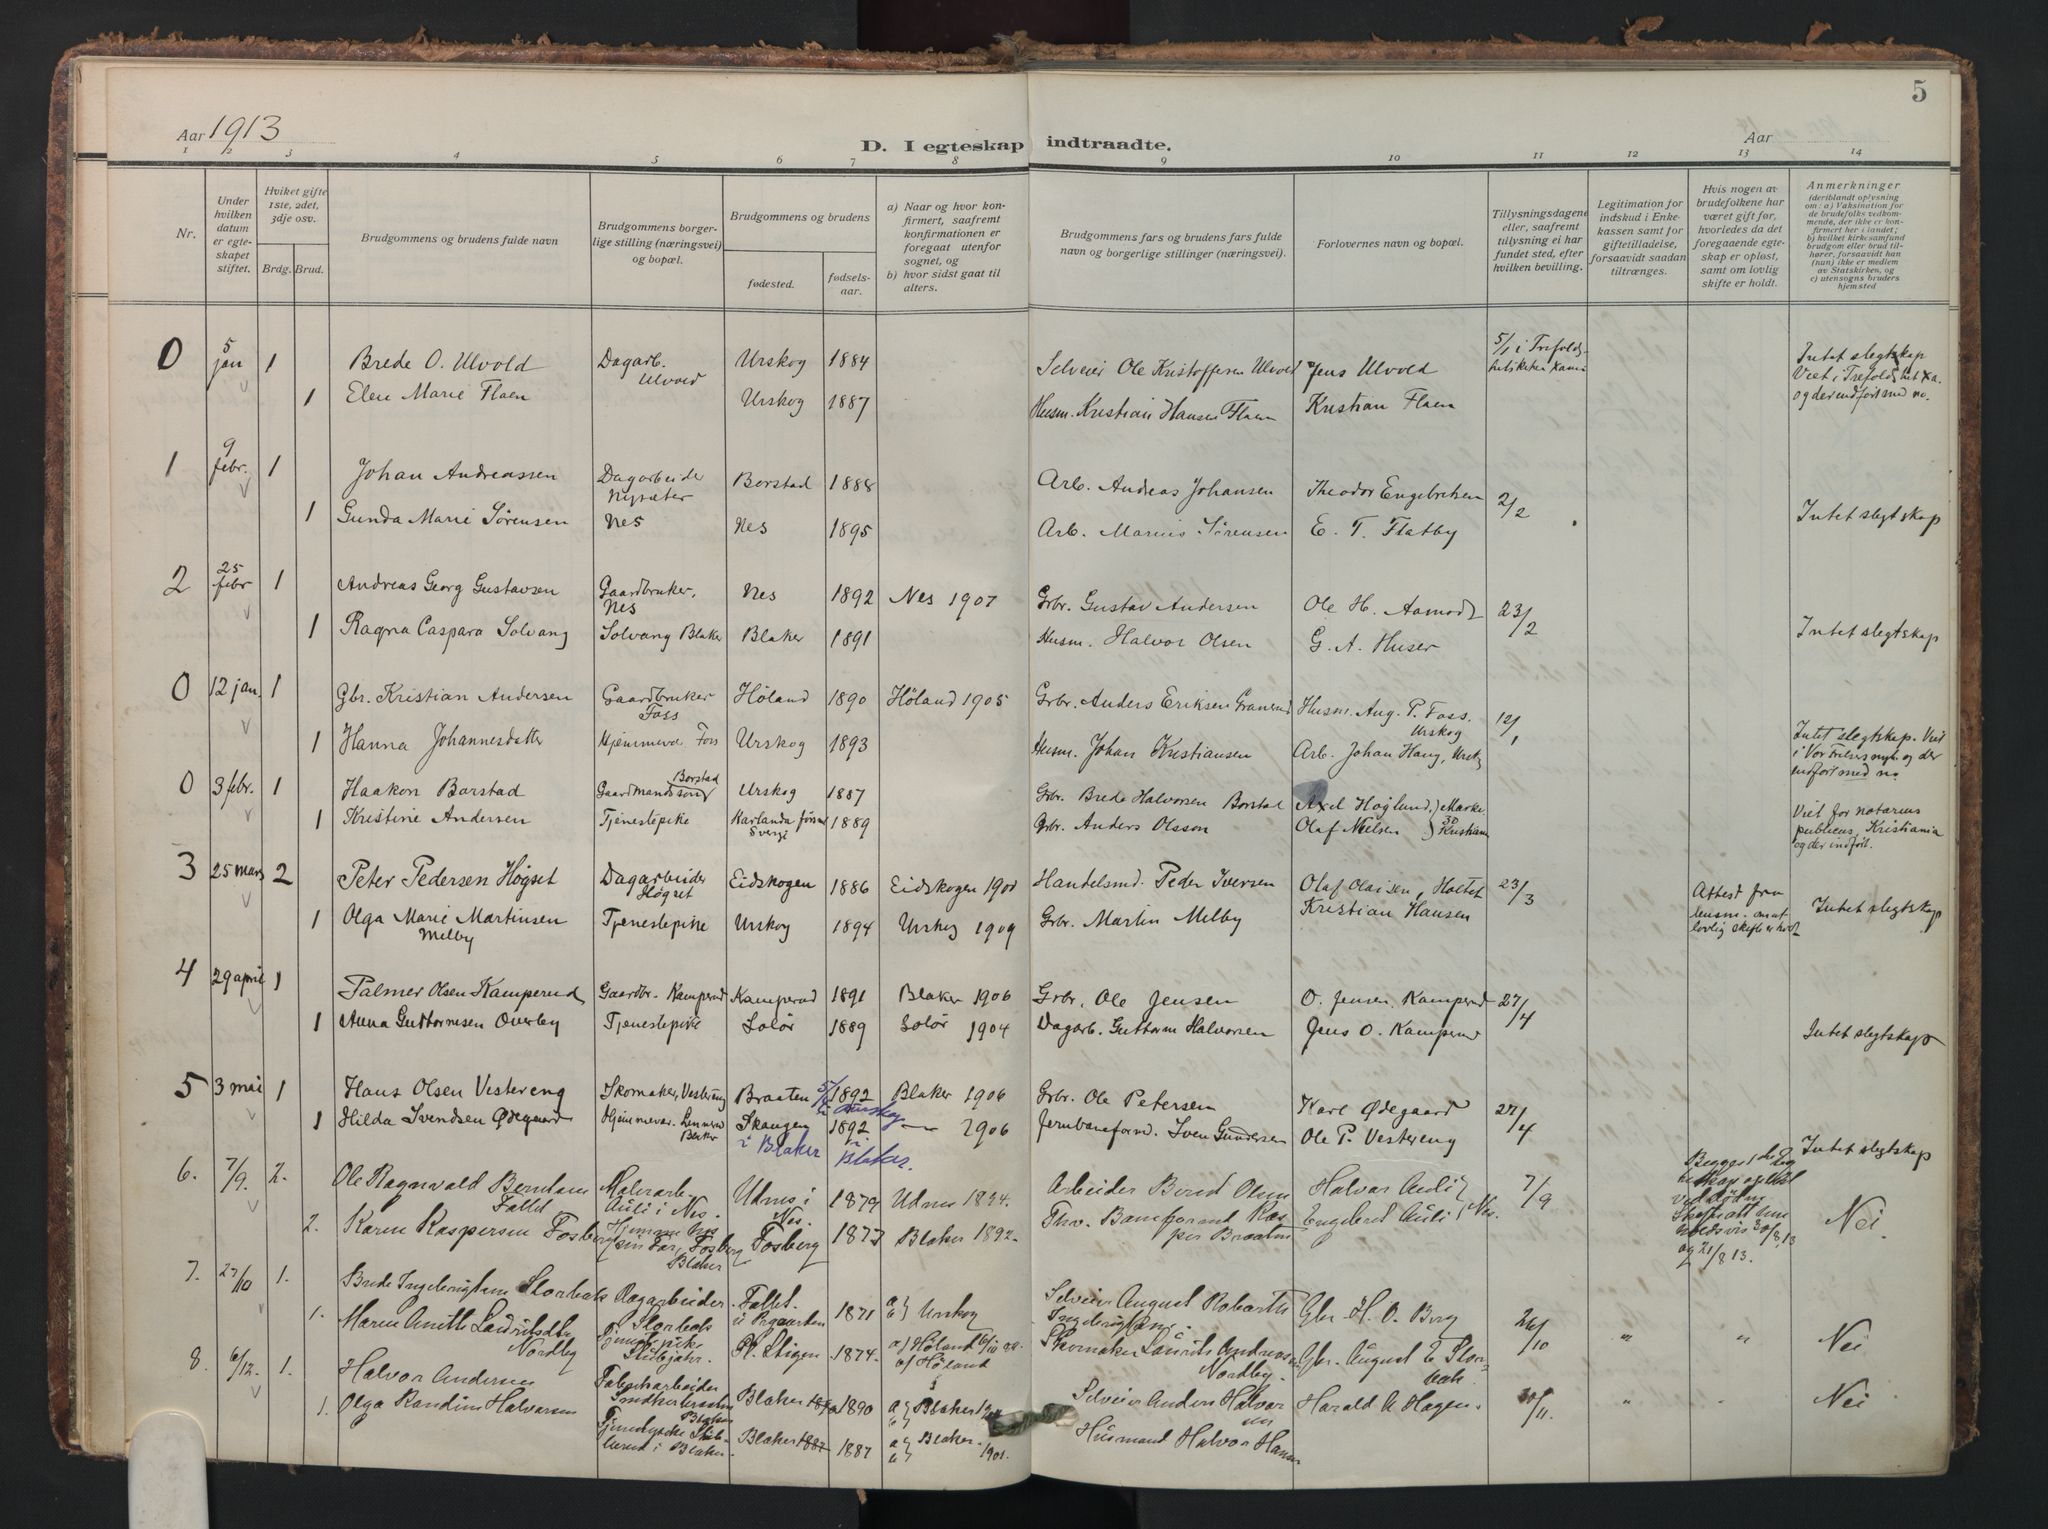 5
Aar 1913
D. I egteskap indtraadte.
Aar
1 2 3 4 5 6 7 8 9 10 11 12 13 14
Nr.
Under hvilken datum er egteskapet stiftet.
Hviket gifte 1ste, 2det, 3dje osv.
Brdg. Brud.
Brudgommens og brudens fulde navn
Brudgommens borgerlige stilling (næringsvei) og bopæl.
Brudgommens og brudens
fødested.
fødselsaar.
a) Naar og hvor konfirmert, saafremt konfirmationen er foregaat utenfor sognet, og
b) hvor sidst gaat til alters.
Brudgommens fars og brudens fars fulde navn og borgerlige stillinger (næringsvei).
Forlovernes navn og bopæl.
Tillysningsdagene eller, saafremt tillysning ei har fundet sted, efter hvilken bevilling.
Legitimation for indskud i Enkekassen samt for giftetilladeise, forsaavidt saadan tiltrænges.
Hvis nogen av brudefolkene har været gift før, hvorledes da det foregaaende egteskap er opløst, samt om lovlig skifte er holdt.
Anmerkninger (deriblandt oplysning om: a) Vaksination for de brudefolks vedkommende, der ikke er konfirmert her i landet; b) hvilket kirkesamfund brudgom eller brud tilhører, forsaavidt han (hun) ikke er medlem av Statskirken, og c) utensogns bruders hjemsted
0 5 jan 1 Brede O. Ulvold Dagarb. Ulvold Urskog 1884 Selveier Ole Kristoffersen Ulvold Jens Ulvold 5/1 i Trefolds- Intet slegtskap
1 Elen Marie Flaen Urskog 1887 Husm. Kristian Hansen Flaen Kristian Flaen og der indført med no.
1 9 febr. 1 Johan Andreassen Dagarbeider Nysæter Borstad 1888 Arb. Andreas Johansen Theodor Engebretsen 2/2
1 Gunda Marie Sørensen Nes Nes 1895 Arb. Marius Sørensen E. T. Flatby Intet slegtskap
2 25 febr 1 Andreas Georg Gustavsen Gaardbruker, Nes Nes 1892 Nes 1907 Grbr. Gustav Andersen Ole H. Aamodt 23/2
1 Ragna Caspara Solvang Solvang Blaker Blaker 1891 Husm. Halvor Olsen G. A. Huser Intet slegtskap
0 12 jan. 1 Gbr. Kristian Andersen Gaardbruker Foss Høland 1890 Høland 1905 Grbr. Anders Eriksen Husm. Aug. P. Foss. Urskog 12/1
1 Hanna Johannesdatter Hjemmevær. Foss Urskog 1893 Husm. Johan Kristiansen Arb. Johan Haug, Urskog Intet slegtskap. Viet i Vor Frelsers og der indført med no
0 3 febr. 1 Haakon Borstad Gaardmandssøn Borstad Urskog 1887 Grbr. Brede Halvorsen Borstad Axel Høglund,
1 Kristine Andersen Tjenestepike Karlanda Sverge 1889 Grbr. Anders Olsson Olaf Nielsen Viet for notarius publicus, Kristiania og der indført.
3 25 mars 2 Peter Pedersen Høgset Dagarbeider Høgset Eidskogen 1886 Eidskogen 1901 Handelsmd. Peder Iversen Olaf Olaisen, Holtet 23/3 Attest fra lensm. om at lovlig skifte er holdt
1 Olga Marie Martinsen Melby Tjenestepike Urskog 1894 Urskog 1909 Grbr. Martin Melby Kristian Hansen Intet slegtskap
4 29 april 1 Palmer Olsen Kamperud Gaardbr. Kamperud Kamperud 1891 Blaker 1906 Grbr. Ole Jensen O. Jensen Kamperud 27/4
1 Anna Guttormsen Overby Tjenestepike Solør 1889 Solør 1904 Dagarb. Guttorm Halvorsen Jens O. Kamperud Intet slegtskap
5 3 mai 1 Hans Olsen Vestereng Skomaker, Vestereng Braaten 1892 Blaker 1906 Grbr. Ole Petersen Karl Ødegaard 27/4
i Aurskog
1 Hilda Svendsen Ødegaard Hjemmevær. Blaker Skangen 1892 — 1906 Jernbaneformd. Sven Gundersen Ole P. Vestereng Intet slegtskap
i Blaker i Blaker.
6. 7/9. 2. Ole Ragnvald Berntsen Fallet Malerarb. Auli i Nes. Udnes i Nes. 1879 Udnes 1894. Arbeider Bernt Olsen Halvor Auli 7/9
2. Karen Kaspersen Fosberg Hjemme hos sin Far, Fosberg Blaker Fosberg 1877 Blaker 1892. Kasper Braaten Engebret Auli, Nes. 30/8.13 og 21/8 13. Nei
7. 27/10 1. Brede Ingebrigtsen Storbak Dagarbeider Storbak Fallet 1871 a) b) Urskog Selveier August Robert Ingebrigtsen. Gbr. H. O. Berg 26/10 " "
1. Maren Anette Lauritsdtr Nordby Tjenestepike Pl. Stigen 1874. a) Høland b) Høland Skomaker Laurits Andreas Nordby. Gbr. August E. Storbak. Nei
8. 6/12. 1. Halvor Andersen Fabrikarbeider Blaker Blaker 1890 a) b) Blaker Selveier Anders Halvorsen Harald A Hagen. 30/11. " " Nei
1. Olga Randine Halvorsen Blaker. Blaker 1887 1887 a) b) Blaker. 1901. Husmand Halvor Hansen